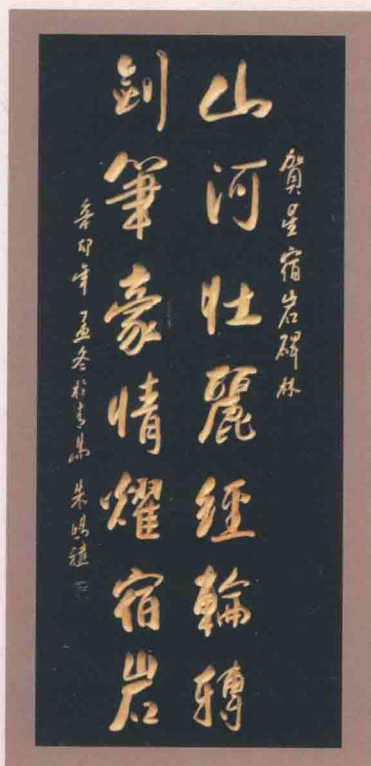 賀星宿岩碑林
山河壯麗經輪轉
劍筆豪情耀宿岩
辛卯年孟冬於青島 朱